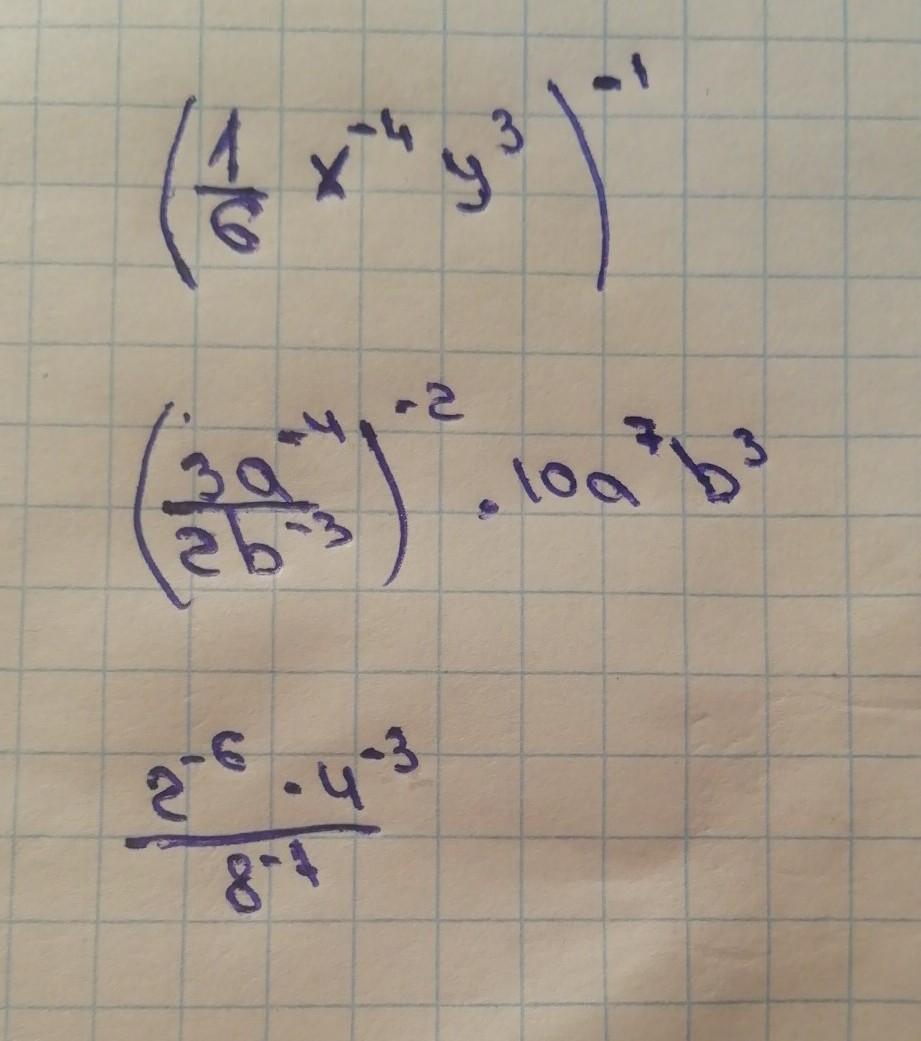 (1/6 x^-4 y^3)^-1
(3a^-4/2b^-3)^-2 · 10a^7b^3
2^-6 · 4^-3/8^-7